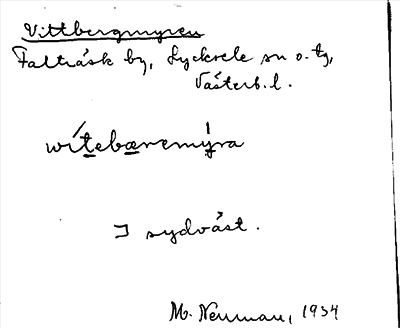 Vittbergmyren
Falträsk by, Lycksele sn o. tg,
Västerb. l.
wítebæremýra
⊐ sydväst.
M. Neuman, 1934